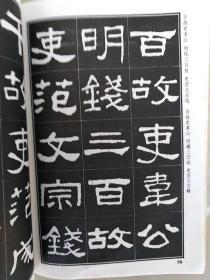 百故吏韦公 明钱三百故 吏范文宗钱 百故吏韋公 明錢三百故 吏范文宗錢
百故吏韋公
明錢三百故
吏范文宗錢